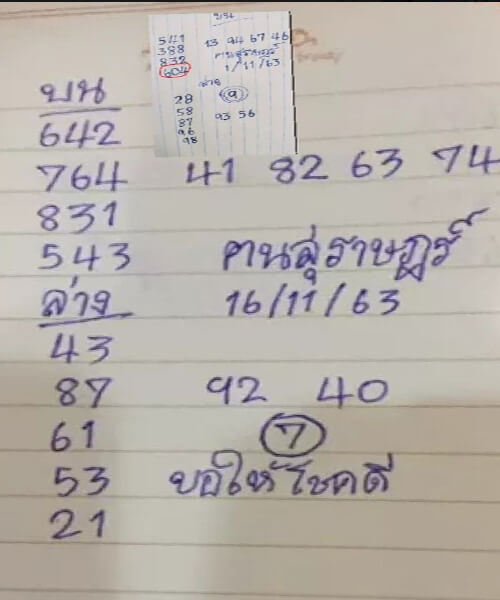 บน
541
388
832
604
13 94 67 46
คนสุราษฎร์
1/11/63
ล่าง
28
58
87
96
98
9
93 56
บน
642
764 41 82 63 74
831
543 คนสุราษฎร์
ล่าง 16/11/63
43
87 92 40
61 7
53 ขอให้โชคดี
21